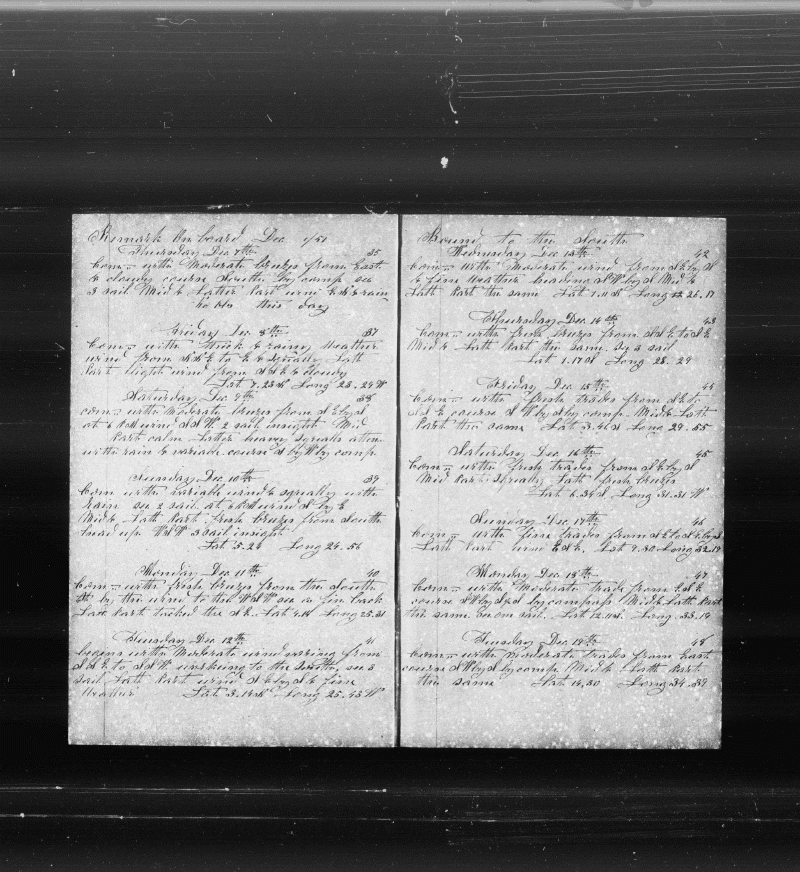 Remark On board Dec /51
Thursday Dec 7th 35
Com = with Moderate breezes from East
& cloudy course South by comp see
3 sail Mid & Latter Part wind & rain
to Obs this day
Friday Dec 8th 37
Com = with thick & rainy Weather
wind from to E & Squally Lath
Part light wind from S S E & cloudy
Lat 7.23 N Long 23.29 W
Saturday Dec 9th 38
com = with Moderate breezes from S E by S
at 6 wind S S W 2 sail insight Mid
Part calm Latter heavy squalls atten
with rain & variable course S by W by comp
Sunday Dec 10th 39
Com with variable wind & squally with
rain see 2 sail at 6 wind S by E
Mid & Lath Part fresh breezes from South
head up W S W 3 sail insight
Lat 5.28 Long 24.56
Monday Dec 11th 40
Com = with fresh breezes from the South
by the wind to the W S W see a fin back
Last Part tacked the S E Lat 4.14 Long 25.31
Tuesday Dec 12th 41
begins with Moderate wind varing from
S S E to S S W working to the South, see 3
sail Lath Part wind S E by S & fine
Weather Lat 3.14 N Long 25.43 W
Bound to the South
Wednesday Dec 13th 42
Com = with Moderate wind from S E by S
& fine Weather heading S W by S Mid &
Lath Part the same Lat 1.11 N Long 26.17
Thursday Dec 14th 43
Com = with fresh breezes from S S E to S E
Mid & Lath Part the same. sy 3 sail
Lat 1.17 S Long 28.29
Friday Dec 15th 44
Com = with fresh trades from S E to
S S E course S W by S by comp. Mid & Lath
Part the same Lat 3.46 S Long 29.55
Saturday Dec 16th 45
Com = with fresh trades from S E by S
Mid Part Squally Lath fresh breezes
Lat 6.34 S Long 31.31 W
Sunday Dec 17th 46
Com = with fine trades from S E to S E by S
Lath Part wind E S E. Lat 9.30 Long 32.19
Monday Dec 18th 47
Com = with Moderate Trade from E S E
course S W by S by compass Mid & Lath Part
the same See on sail. Lat 12.11 S. Long. 33.19
Tuesday Dec 19th 48
Com = with Moderate trades from East
course S W by S by comp Mid & Lath Part
the same Lat 14.30 Long 34.39